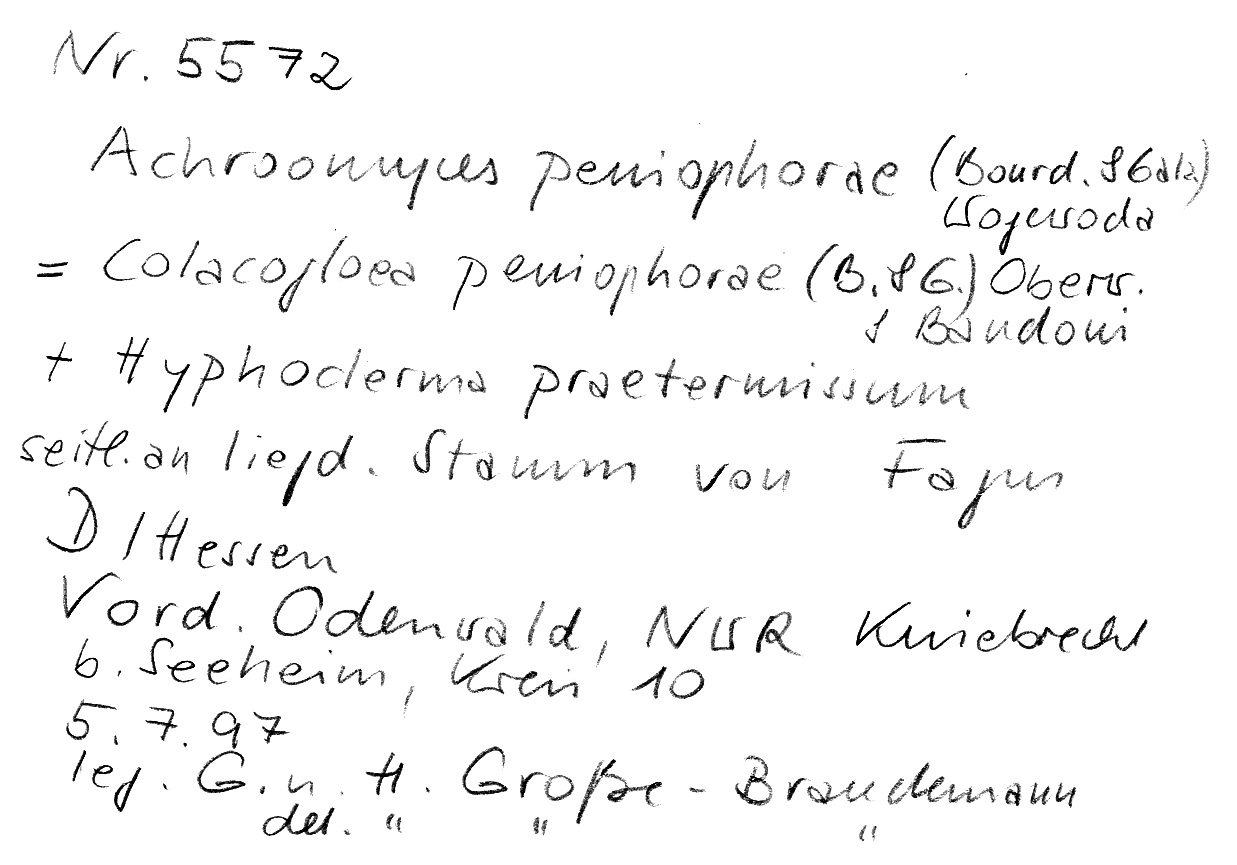 Nr. 5572
Achroomyces peniophorae (Bourd. & Galz.)
Wojewoda
= Colacogloea peniophorae (B. & G.) Oberw.
& Bandoni
+ Hyphoderma praetermissum
seitl. an liegd. Stamm von Fagus
D/Hessen
Vord. Odenwald, NWR Kniebrecht
b. Seeheim, Kreis 10
5.7.97
leg. G. u. H. Große-Brauckmann
det. " " "